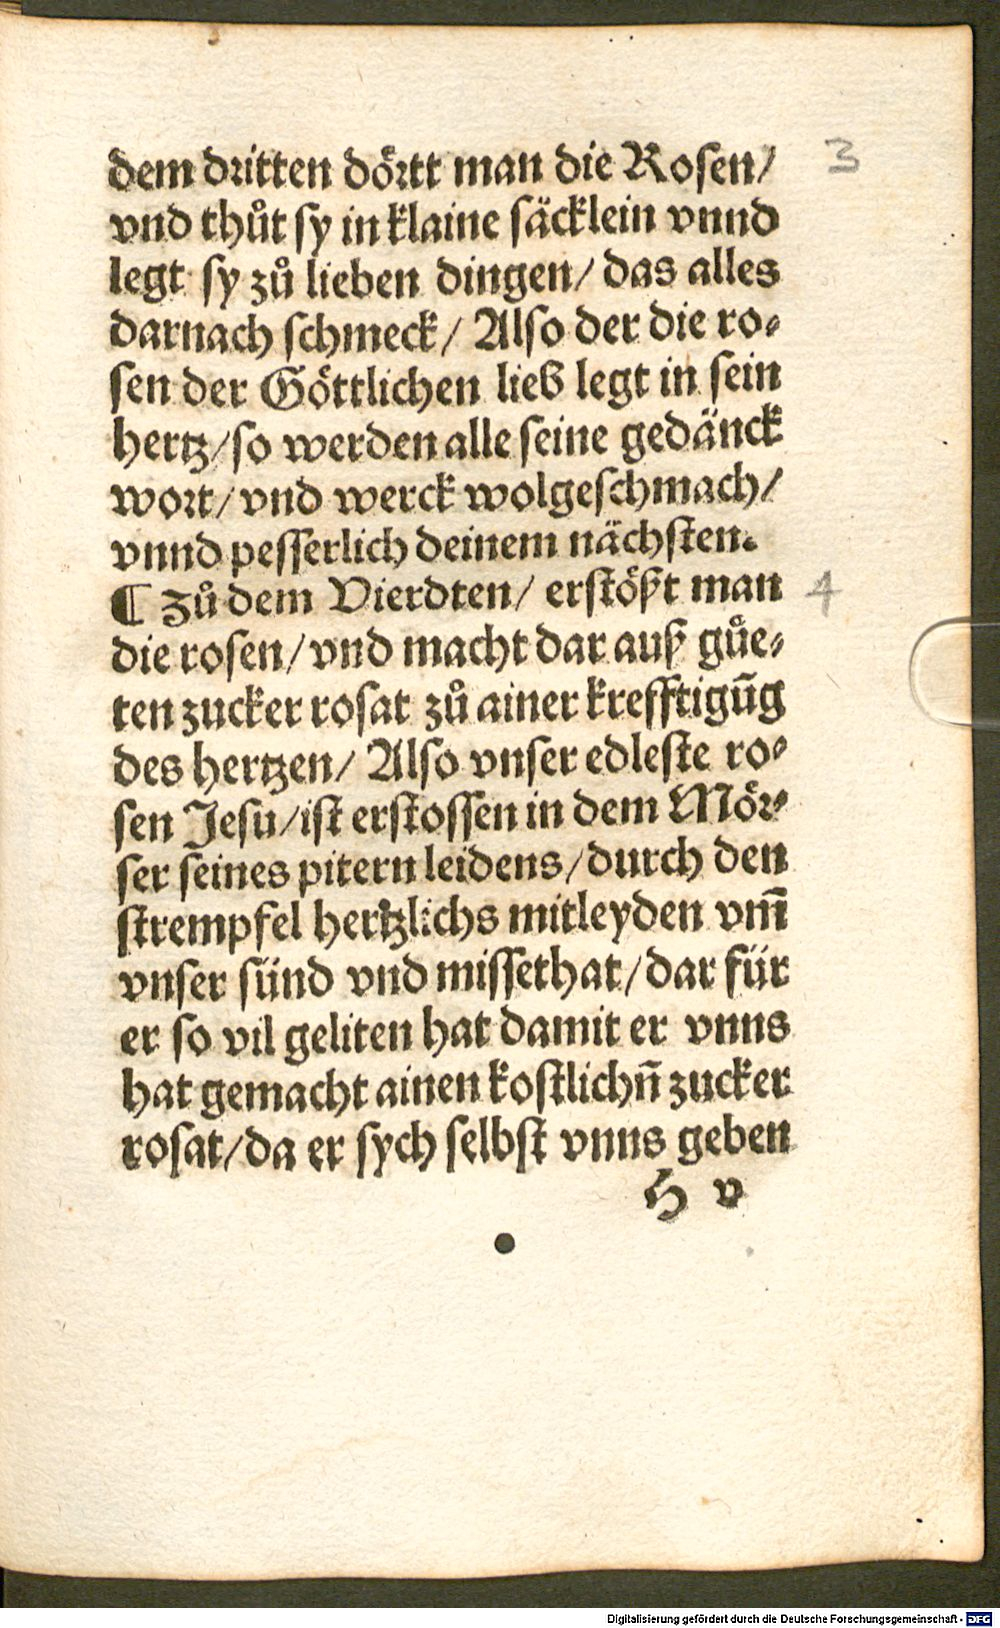 dem dritten dörtt man die Rosen/
vnd thůt sy in klaine säcklein vnnd
legt sy zů lieben dingen/ das alles
darnach schmeck/ Also der die ro⸗
sen der Göttlichen lieb legt in sein
hertz/so werden alle seine gedänck
wort/ vnd werck wolgeschmach/
vnnd pesserlich deinem nächsten.
¶ Zů dem Vierdten/ erstößt man
die rosen/ vnd macht dar auß gůe⸗
ten zucker rosat zů ainer krefftigūg
des hertzen/ Also vnser edleste ro⸗
sen Jesu/ist erstossen in dem Mör⸗
ser seines pitern leidens/durch den
strempfel hertzlichs mitleyden vm̄
vnser sünd vnd missethat/dar für
er so vil geliten hat damit er vnns
hat gemacht ainen kostlichn̄ zucker
rosat/da er sych selbst vnns geben
H v
3
4
Digitalisierung gefördert durch die Deutsche Forschungsgemeinschaft - DFG